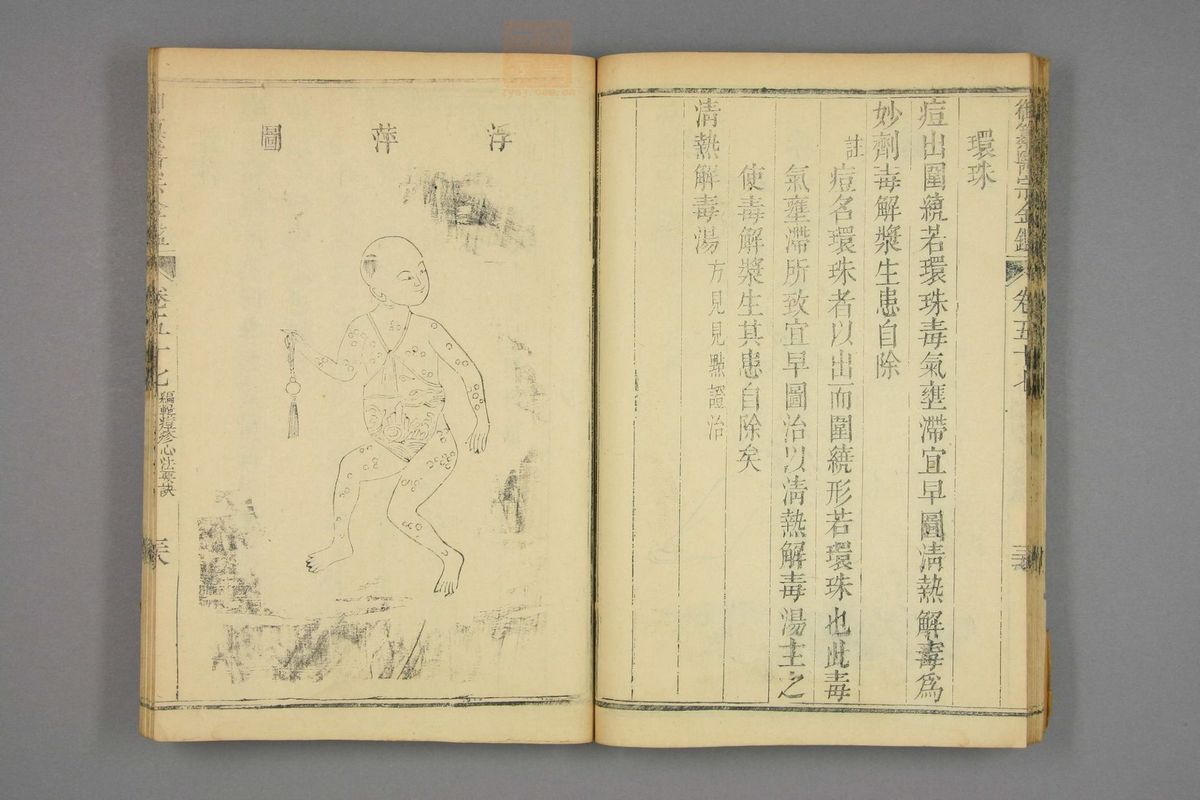 御纂醫宗金鑑 卷五十七
環珠
痘出圍繞若環珠毒氣壅滯宜早圖清熱解毒爲
妙劑毒解漿生患自除
註
痘名環珠者以出而圍繞形若環珠也此毒
氣壅滯所致宜早圖治以清熱解毒湯主之
使毒解漿生其患自除矣
清熱解毒湯 方見見點證治
浮萍圖
卷五十七 編輯痘疹心法要訣